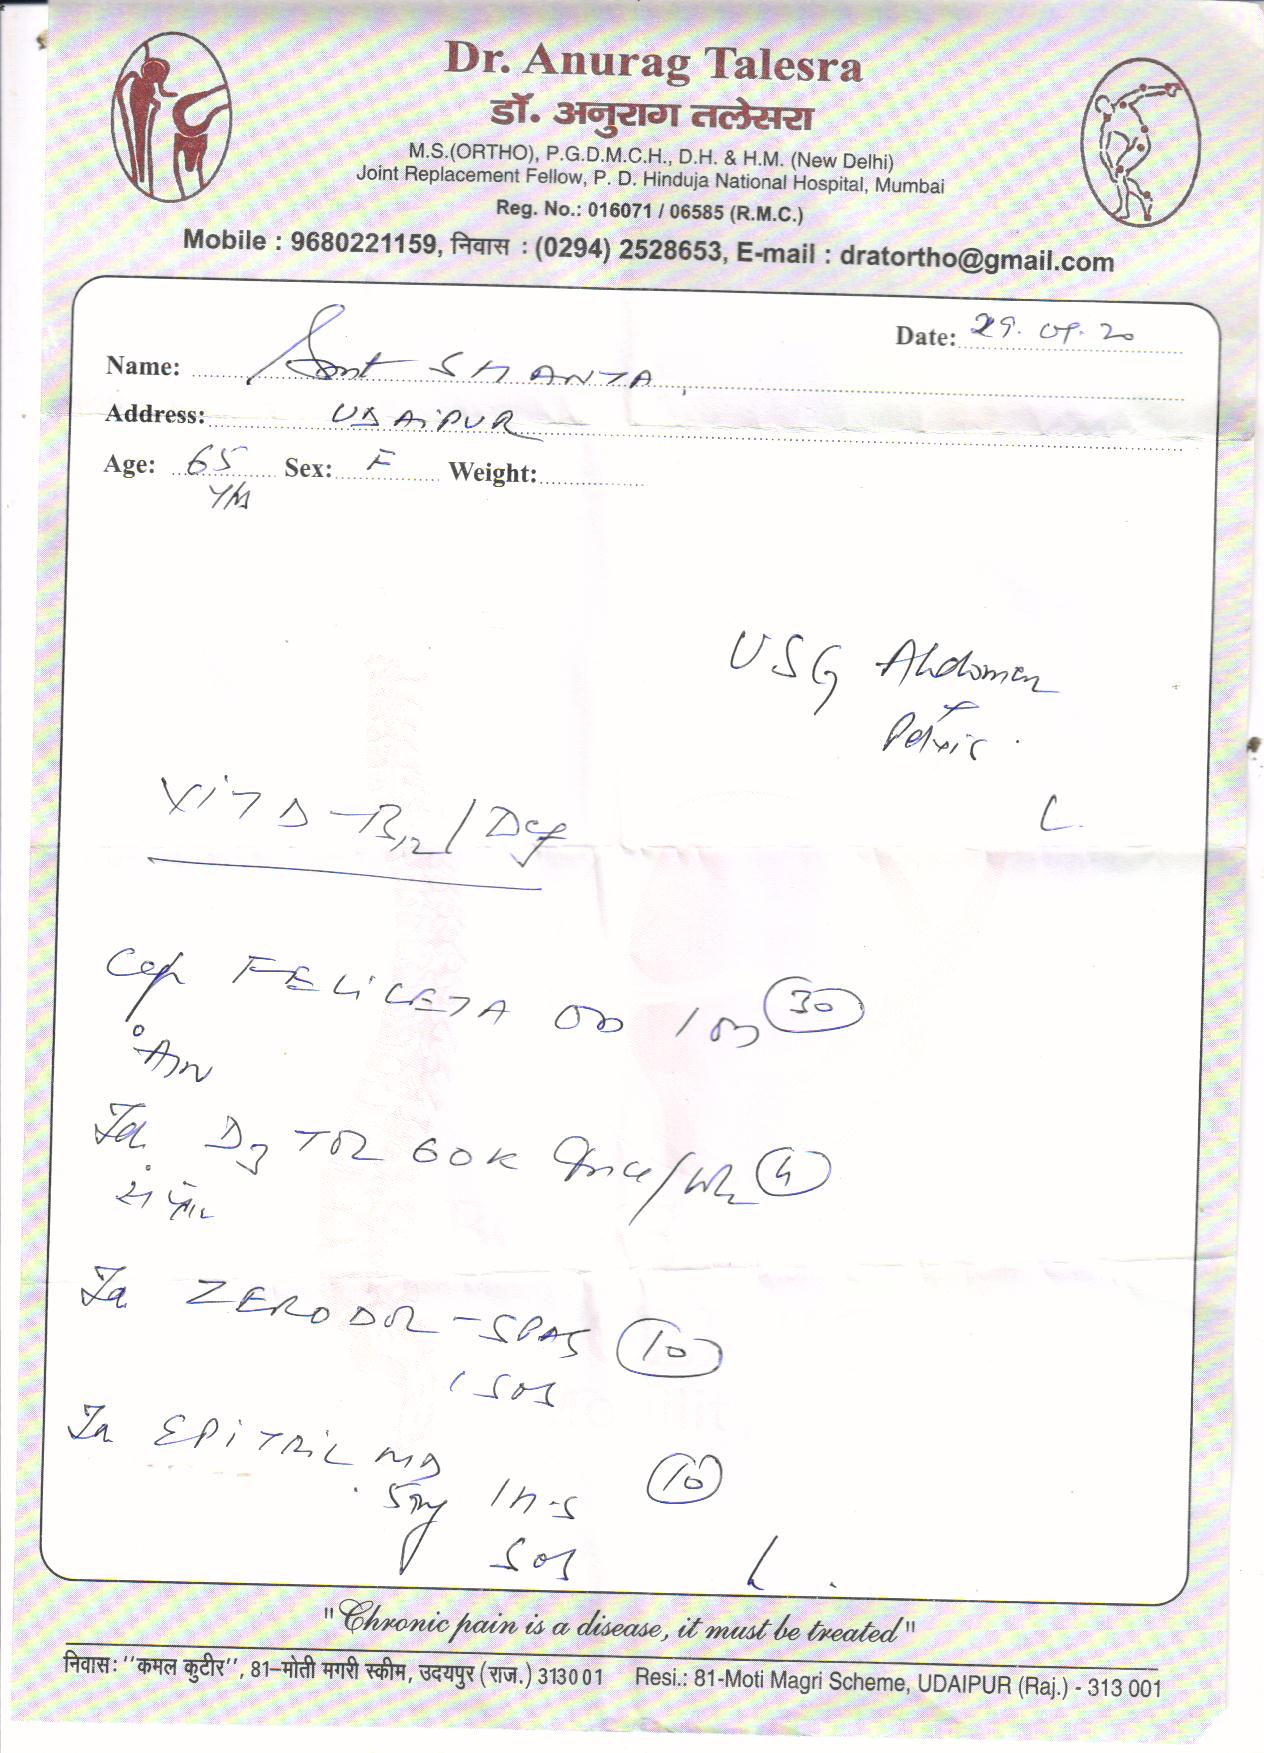 Dr. Anurag Talesra
डॉ. अनुराग तलेसरा
M.S.(ORTHO), P.G.D.M.C.H., D.H. & H.M. (New Delhi)
Joint Replacement Fellow, P. D. Hinduja National Hospital, Mumbai
Reg. No.: 016071 / 06585 (R.M.C.)
Mobile : 9680221159, निवास : (0294) 2528653, E-mail : dratortho@gmail.com
Date: 29.09.20
Name: Smt SHANTA
Address: UDAIPUR
Age: 65 Sex: F Weight:
Yrs
USG Abdomen
+
Pelvis.
VIT D - B12 / Def
Cap FELICETA OD 1 30
Ta D3 TOR 60K Once/wk 4
Ta ZERODOL-SPAS 10
1 SOS
Ta EPITRIL MD 10
.5mg 1 H-S
SOS
"Chronic pain is a disease, it must be treated"
निवास: "कमल कुटीर", 81-मोती मगरी स्कीम, उदयपुर (राज.) 313001 Resi.: 81-Moti Magri Scheme, UDAIPUR (Raj.) - 313 001